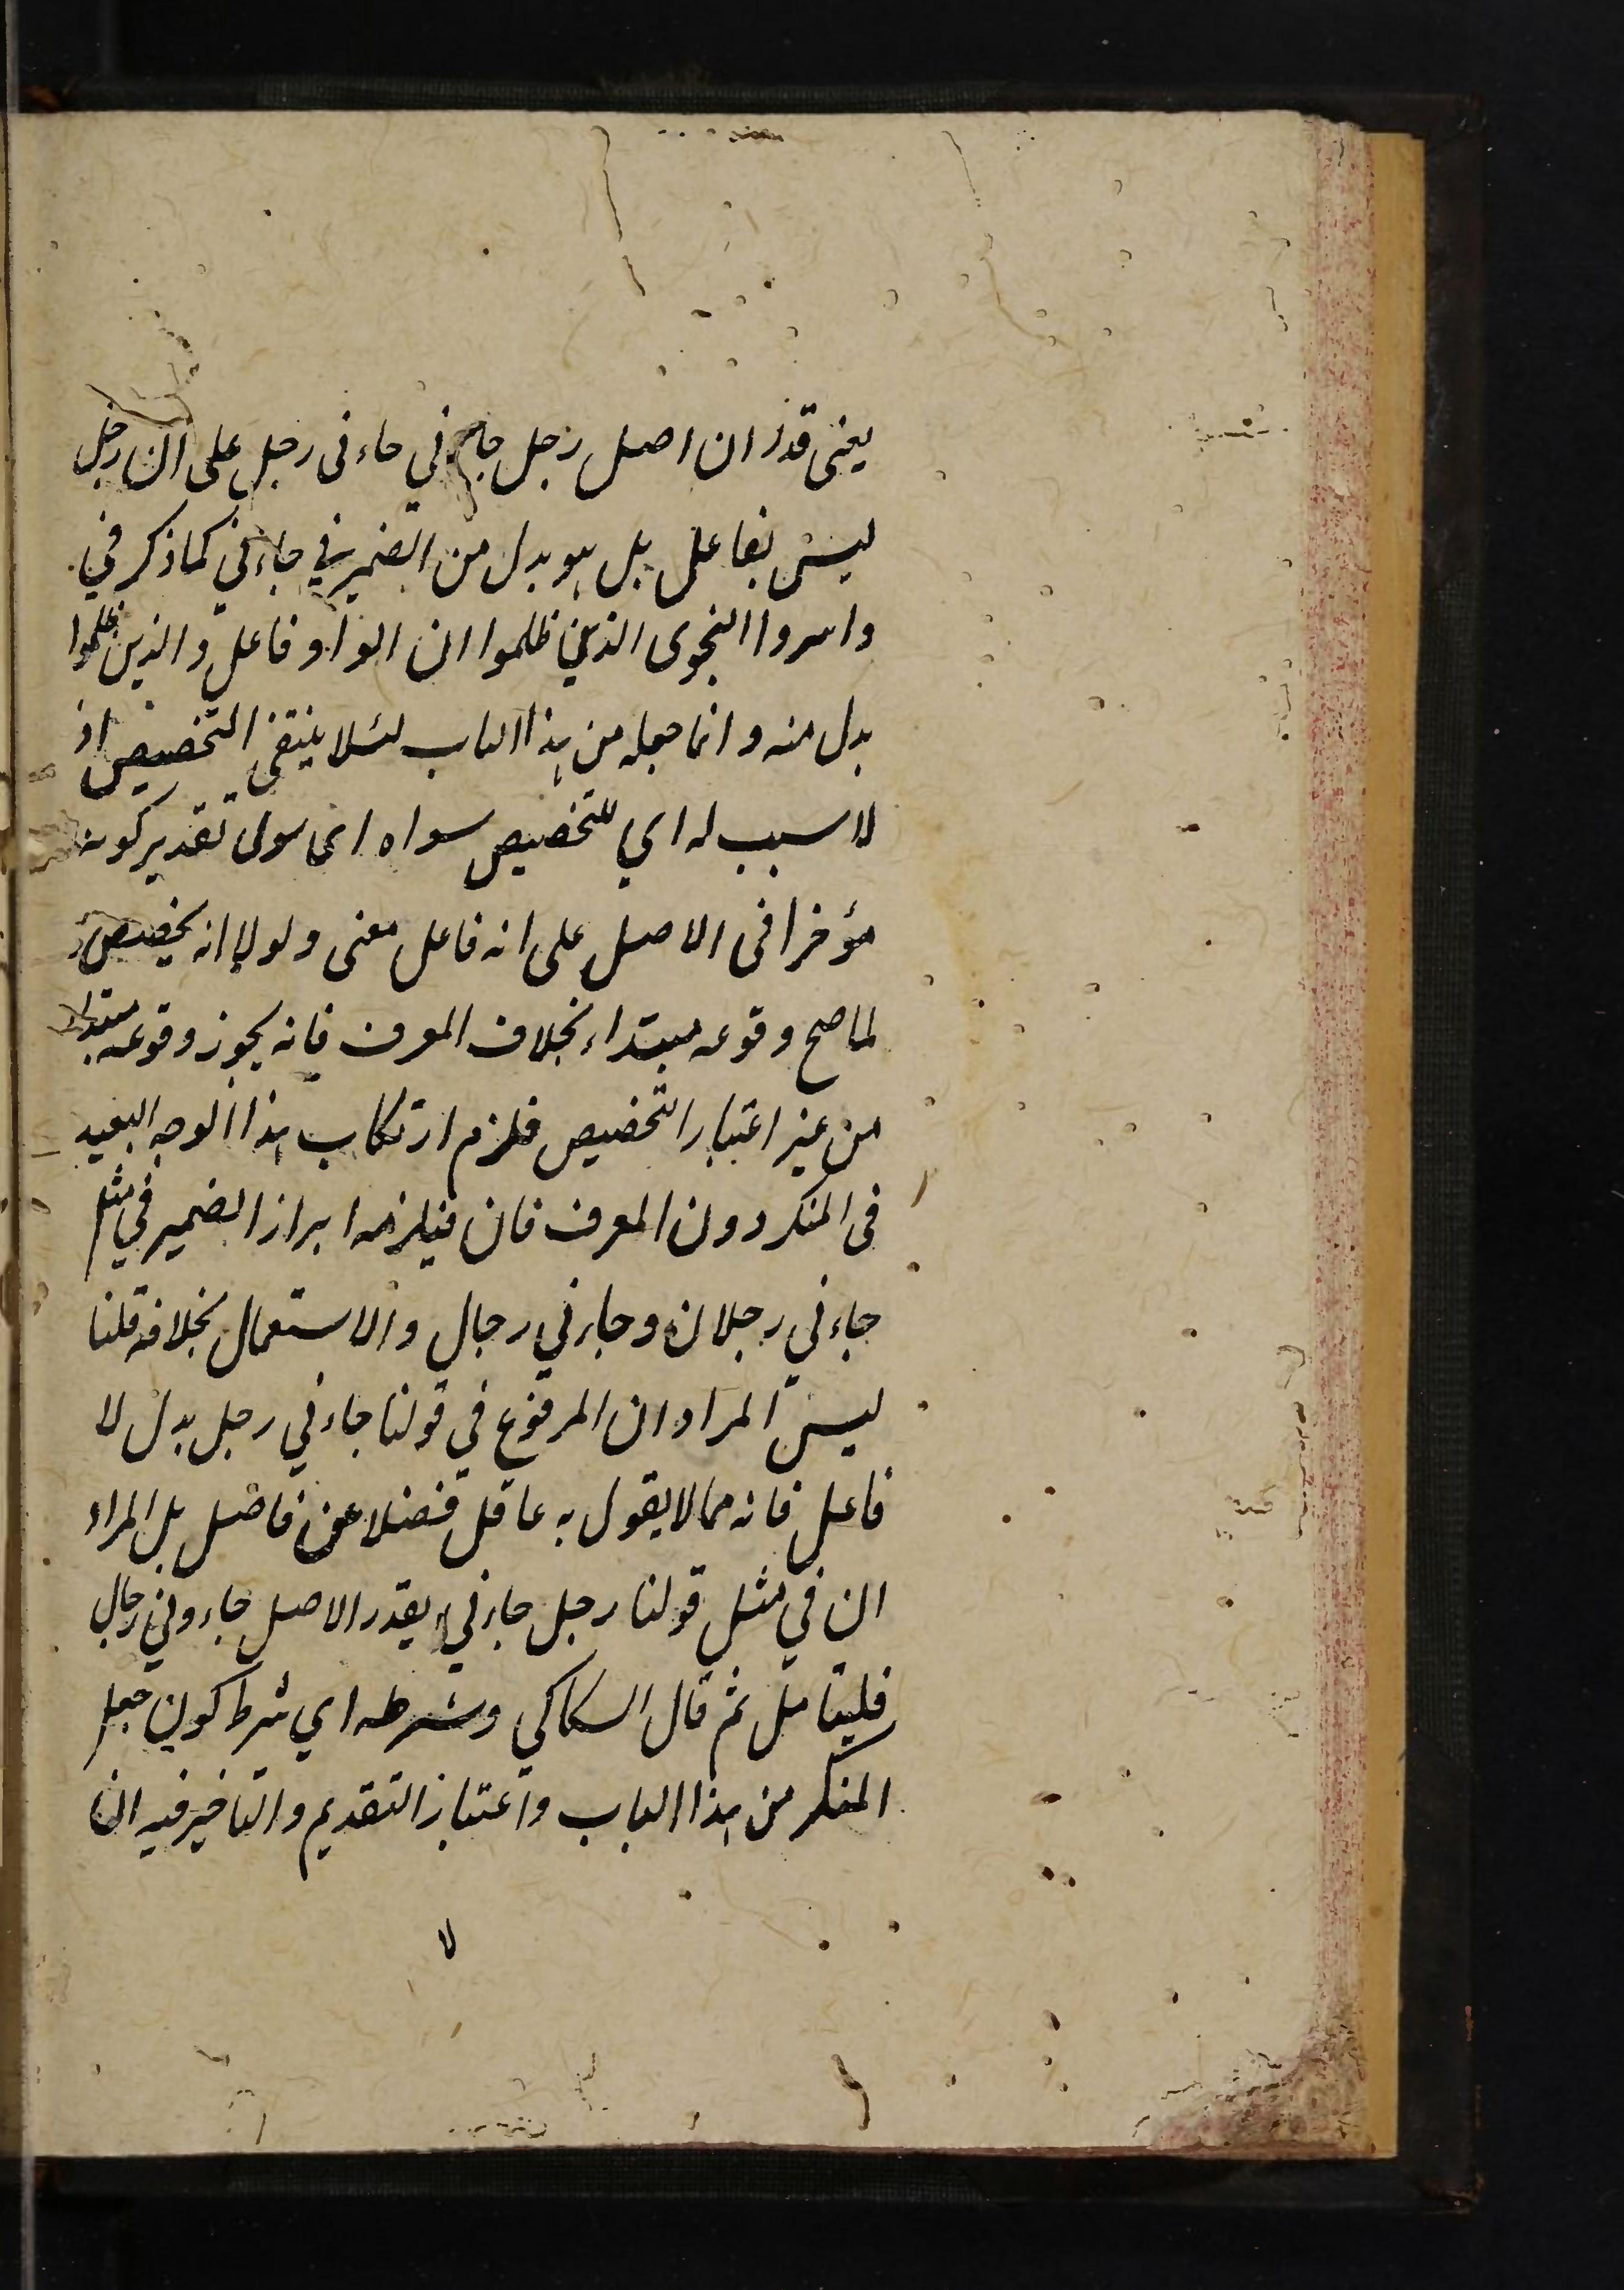 يعنى قدر ان اصل رجل جاءني جاءنى رجل على ان رجل
ليس بفاعل بل هو بدل من الضمير في جاءني كما ذكر في
واسروا النجوى الذين ظلموا ان الواو فاعل والذين ظلموا
بدل منه وانما جعله من هذا الباب لئلا ينتفى التخصيص اذ
لا سبب له اي للتخصيص سواه اى سوى تقدير كونه
مؤخرا فى الاصل على انه فاعل معنى ولولا انه يخصص
لما صح وقوعه مبتداء بخلاف المعرف فانه يجوز وقوعه مبتداء
من غير اعتبار التخصيص فلزم ارتكاب هذا الوجه البعيد
فى المنكر دون المعرف فان فيلزمه ابراز الضمير في مثل
جاءني رجلان وجاءني رجال والاستعمال بخلافه قلنا
ليس المراد ان المرفوع في قولنا جاءني رجل بدل لا
فاعل فانه مما لا يقول به عاقل فضلا عن فاضل بل المراد
ان في مثل قولنا رجل جاءني يقدر الاصل جاءوني رجال
فليتامل ثم قال السكاكي وشرطه اي شرط كون جعل
المنكر من هذا الباب واعتبار التقديم والتاخير فيه ان
لا